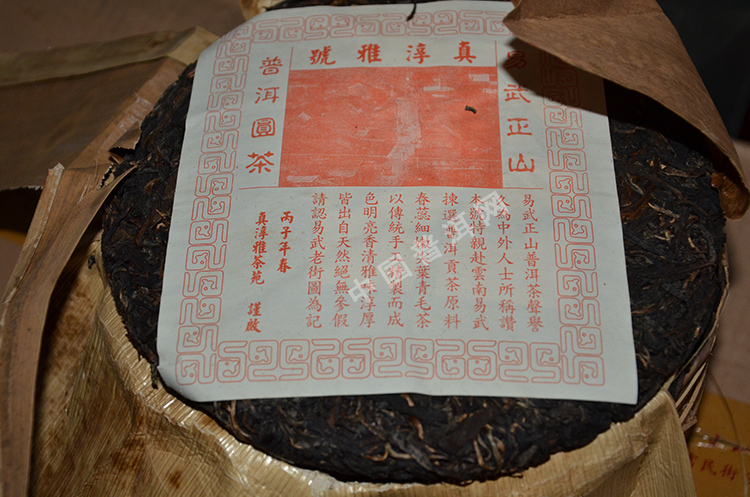 真淳雅號
易武正山
普洱圓茶
易武正山普洱茶聲譽
久為中外人士所稱讚
本號特親赴雲南易武
揀選普洱貢茶原料
春蕊細嫩葉青毛茶
以傳統手工精製而成
色明亮香清雅味淳厚
皆出自天然絕無參假
請認易武老街圖為記
丙子年春
真淳雅茶苑 謹啟
中国普洱网
民術